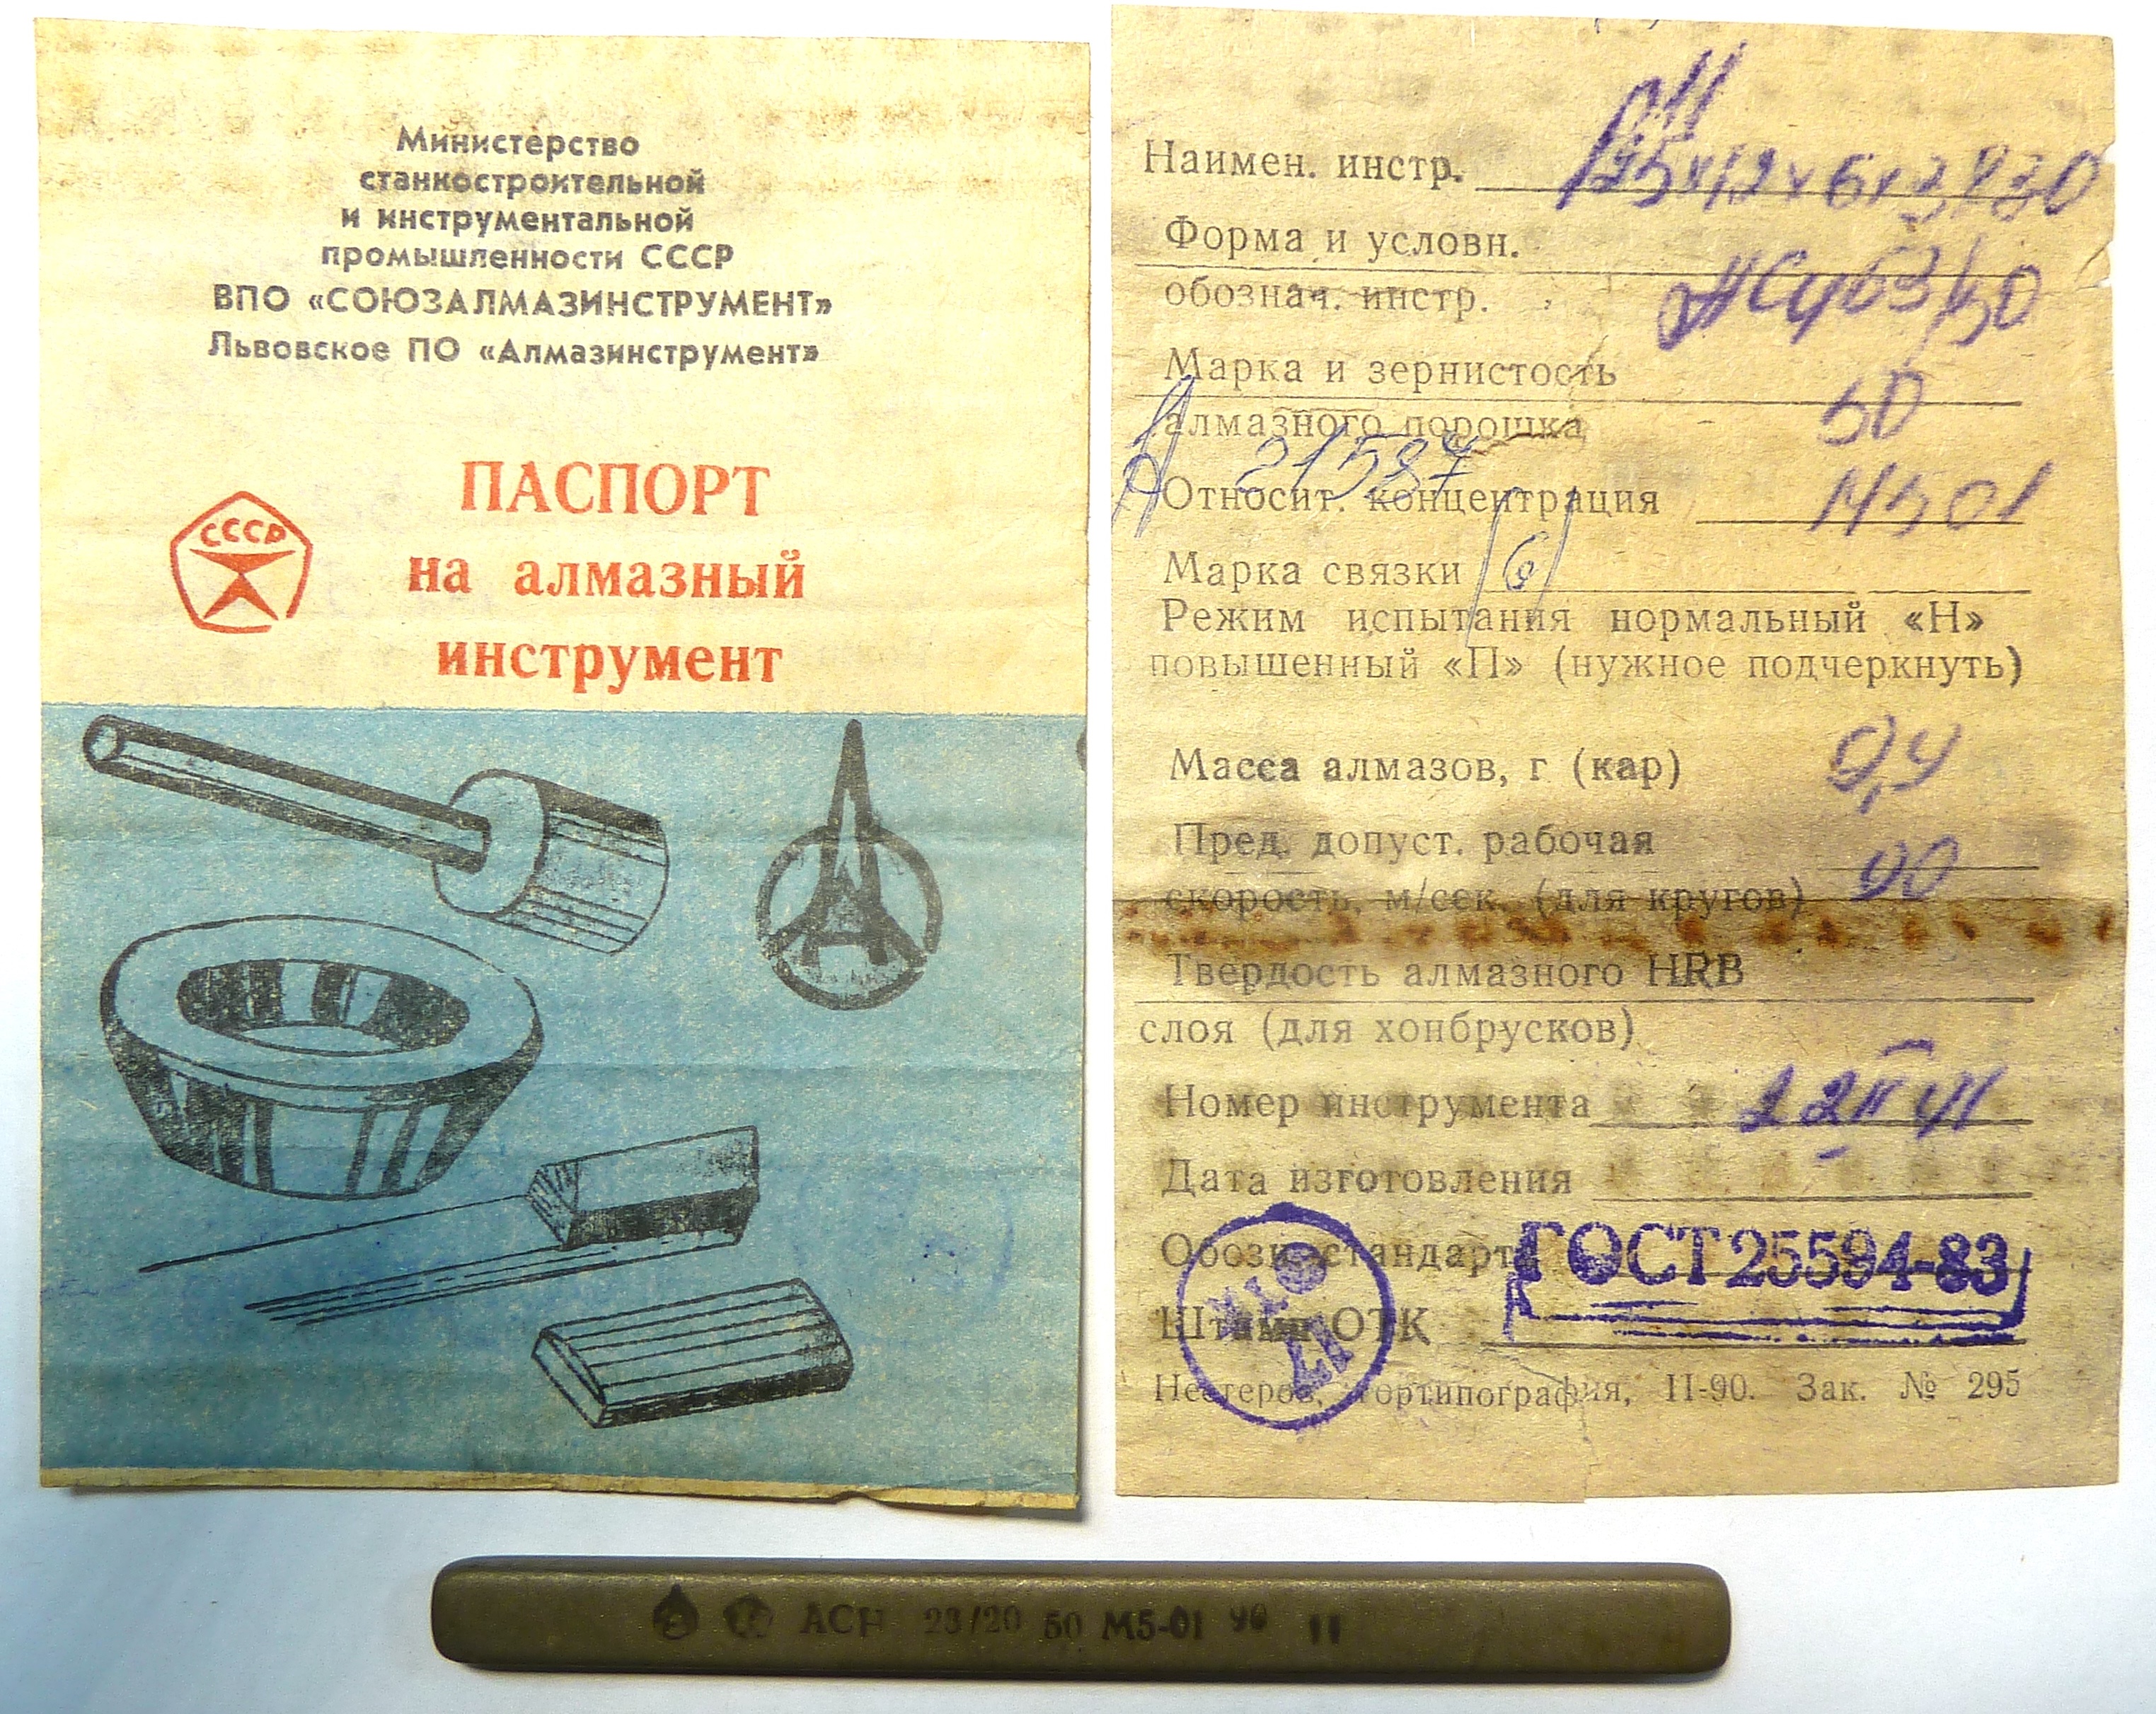 Министерство
станкостроительной
и инструментальной
промышленности СССР
ВПО «СОЮЗАЛМАЗИНСТРУМЕНТ»
Львовское ПО «Алмазинструмент»
СССР
ПАСПОРТ
на алмазный
инструмент
Наимен. инстр.
Форма и условн.
обознач. инстр.
Марка и зернистость
50
алмазного порошка
21587
Относит. концентрация
Марка связки
Режим испытания нормальный «Н»
повышенный «П» (нужное подчеркнуть)
Масса алмазов, г (кар)
Пред. допуст. рабочая
скорость, м/сек. (для кругов)
Твердость алмазного HRB
слоя (для хонбрусков)
Номер инструмента
Дата изготовления
Обозн. стандарта ГОСТ 25594-83
Штамп ОТК
ОТК
17
Нестеров, гортипография, II-90. Зак. № 295
АСН 28/20 50 М5-01 90 II